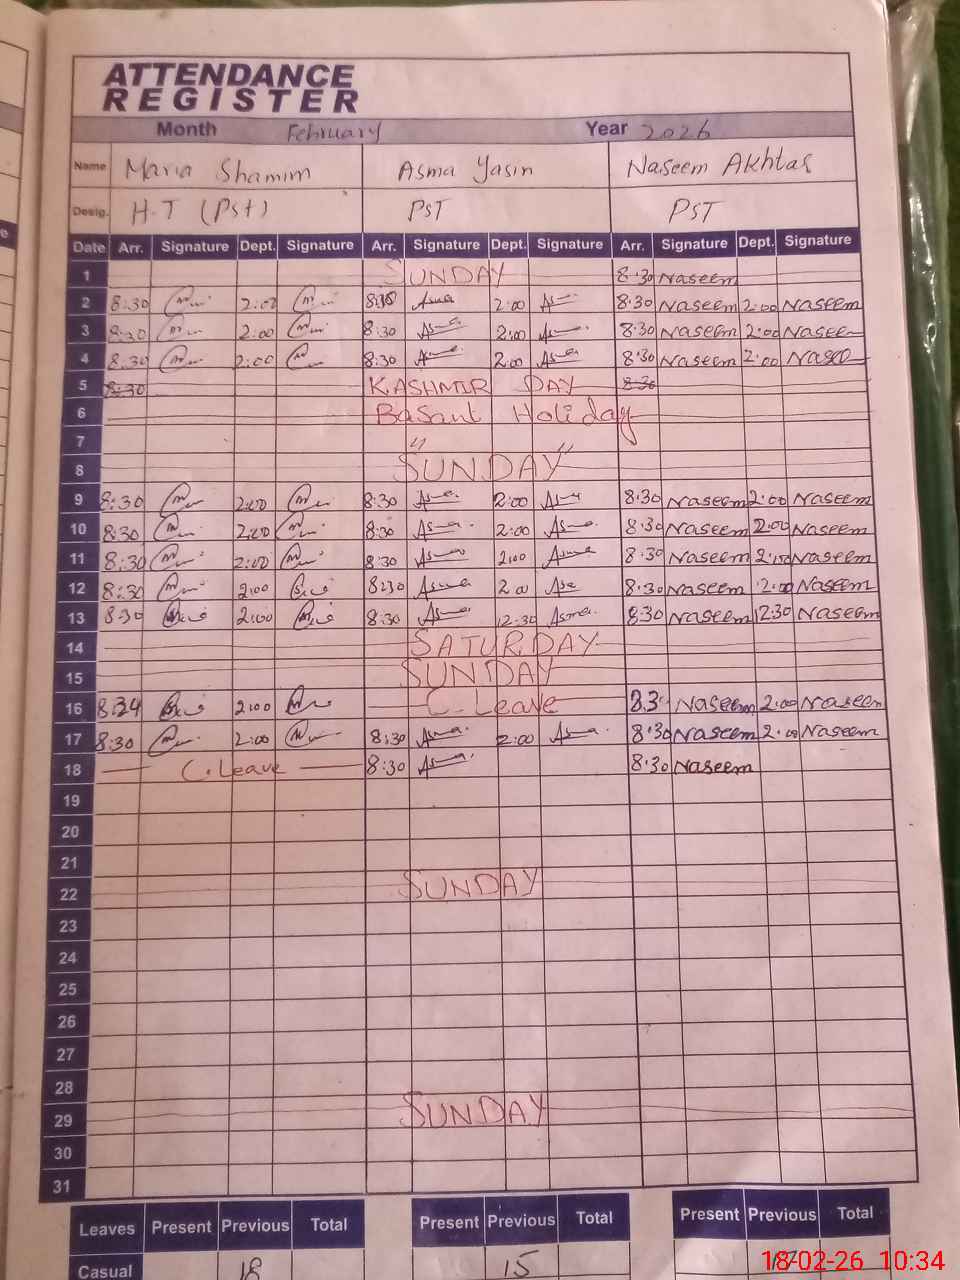 ATTENDANCE
REGISTER
Month February Year 2026
Name Maria Shamim Asma Yasin Naseem Akhtar
Desig. H.T (Pst) PST PST
Date Arr. Signature Dept. Signature Arr. Signature Dept. Signature Arr. Signature Dept. Signature
1 SUNDAY 8:30 Naseem
2 8:30 2:00 8:30 Asma 2:00 8:30 Naseem 2:00 Naseem
3 8:30 2:00 8:30 Asma 2:00 8:30 Naseem 2:00 Naseem
4 8:30 2:00 8:30 Asma 2:00 Asma 8:30 Naseem 2:00
5 8:30 KASHMIR DAY 8:30
6 Basant Holiday
7 " "
8 SUNDAY
9 8:30 2:00 8:30 Asma 2:00 Asma 8:30 Naseem 2:00 Naseem
10 8:30 2:00 8:30 Asma 2:00 Asma 8:30 Naseem 2:00 Naseem
11 8:30 2:00 8:30 Asma 2:00 Asma 8:30 Naseem 2:00 Naseem
12 8:30 2:00 8:30 Asma 2:00 8:30 Naseem 2:00 Naseem
13 8:30 2:00 8:30 Asma 12:30 Asma 8:30 Naseem 12:30 Naseem
14 SATURDAY
15 SUNDAY
16 8:34 2:00 C. Leave Naseem 2:00 Naseem
17 8:30 2:00 8:30 Asma 2:00 Asma 8:30 Naseem 2:00 Naseem
18 C. Leave 8:30 Asma 8:30 Naseem
19
20
21
22 SUNDAY
23
24
25
26
27
28
29 SUNDAY
30
31
Leaves Present Previous Total Present Previous Total Present Previous Total
Casual 18 15
18-02-26 10:34